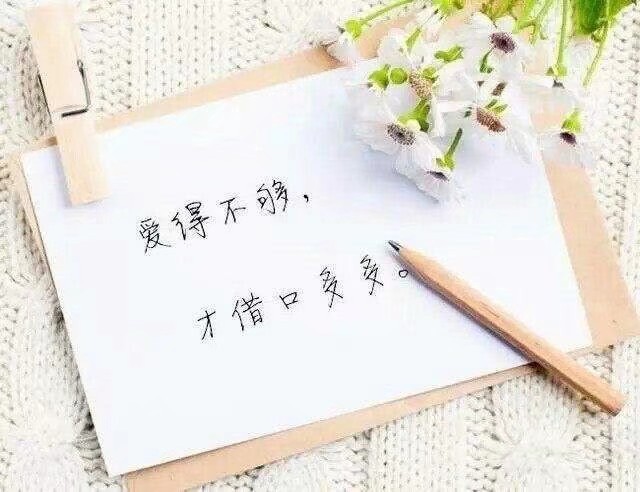 爱得不够，
才借口多多。